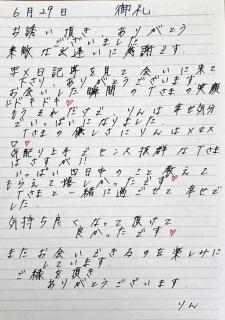 6月29日 御礼
お誘い頂き、ありがとう
ございました
素敵な出逢いに感謝です。
写メ日記等を見て会いに来て
下さりありがとうございます
お会いした瞬間のTさまの笑顔
にドキドキ♥
もうそれだけで りんは幸せ気分
でいっぱいになりました
Tさまの優しさにりんはメロメロ
♥
気配り上手でセンス抜群なTさま
はさすが!!
いっぱい四日市のこと教えて
もらえて嬉しかったです♥
Tさまと一緒に過ごせて幸せで
した
気持ち良くなって頂けて
良かったです♥
またお会いできるのを楽しみに
しています
ご縁を頂き
ありがとうございます。
りん